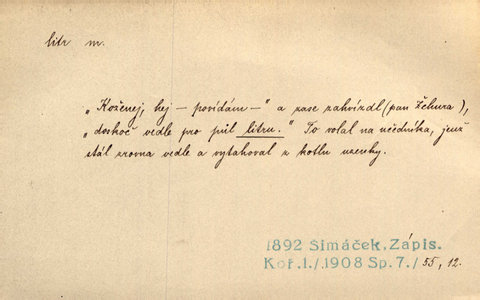 litr m.
„Koženej, hej – povídám –" a zase zahvízdl (pan Žehura),
„doskoč vedle pro půl litru." To volal na učedníka, jenž
stál zrovna vedle a vytahoval z kotlu uzenky.
1892 Šimáček, Zápis.
Koř.1./1908 Sp.7./55, 12.